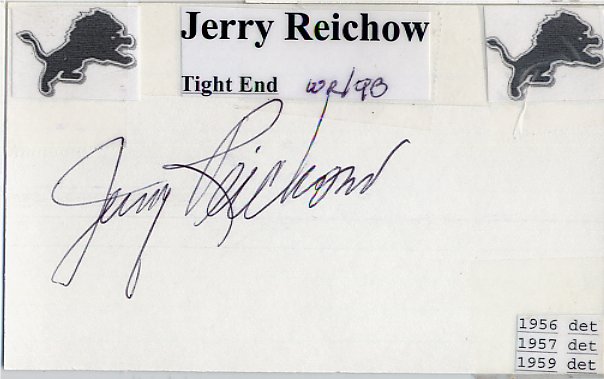 Jerry Reichow
Tight End WR/QB
Jerry Reichow
1956 det
1957 det
1959 det